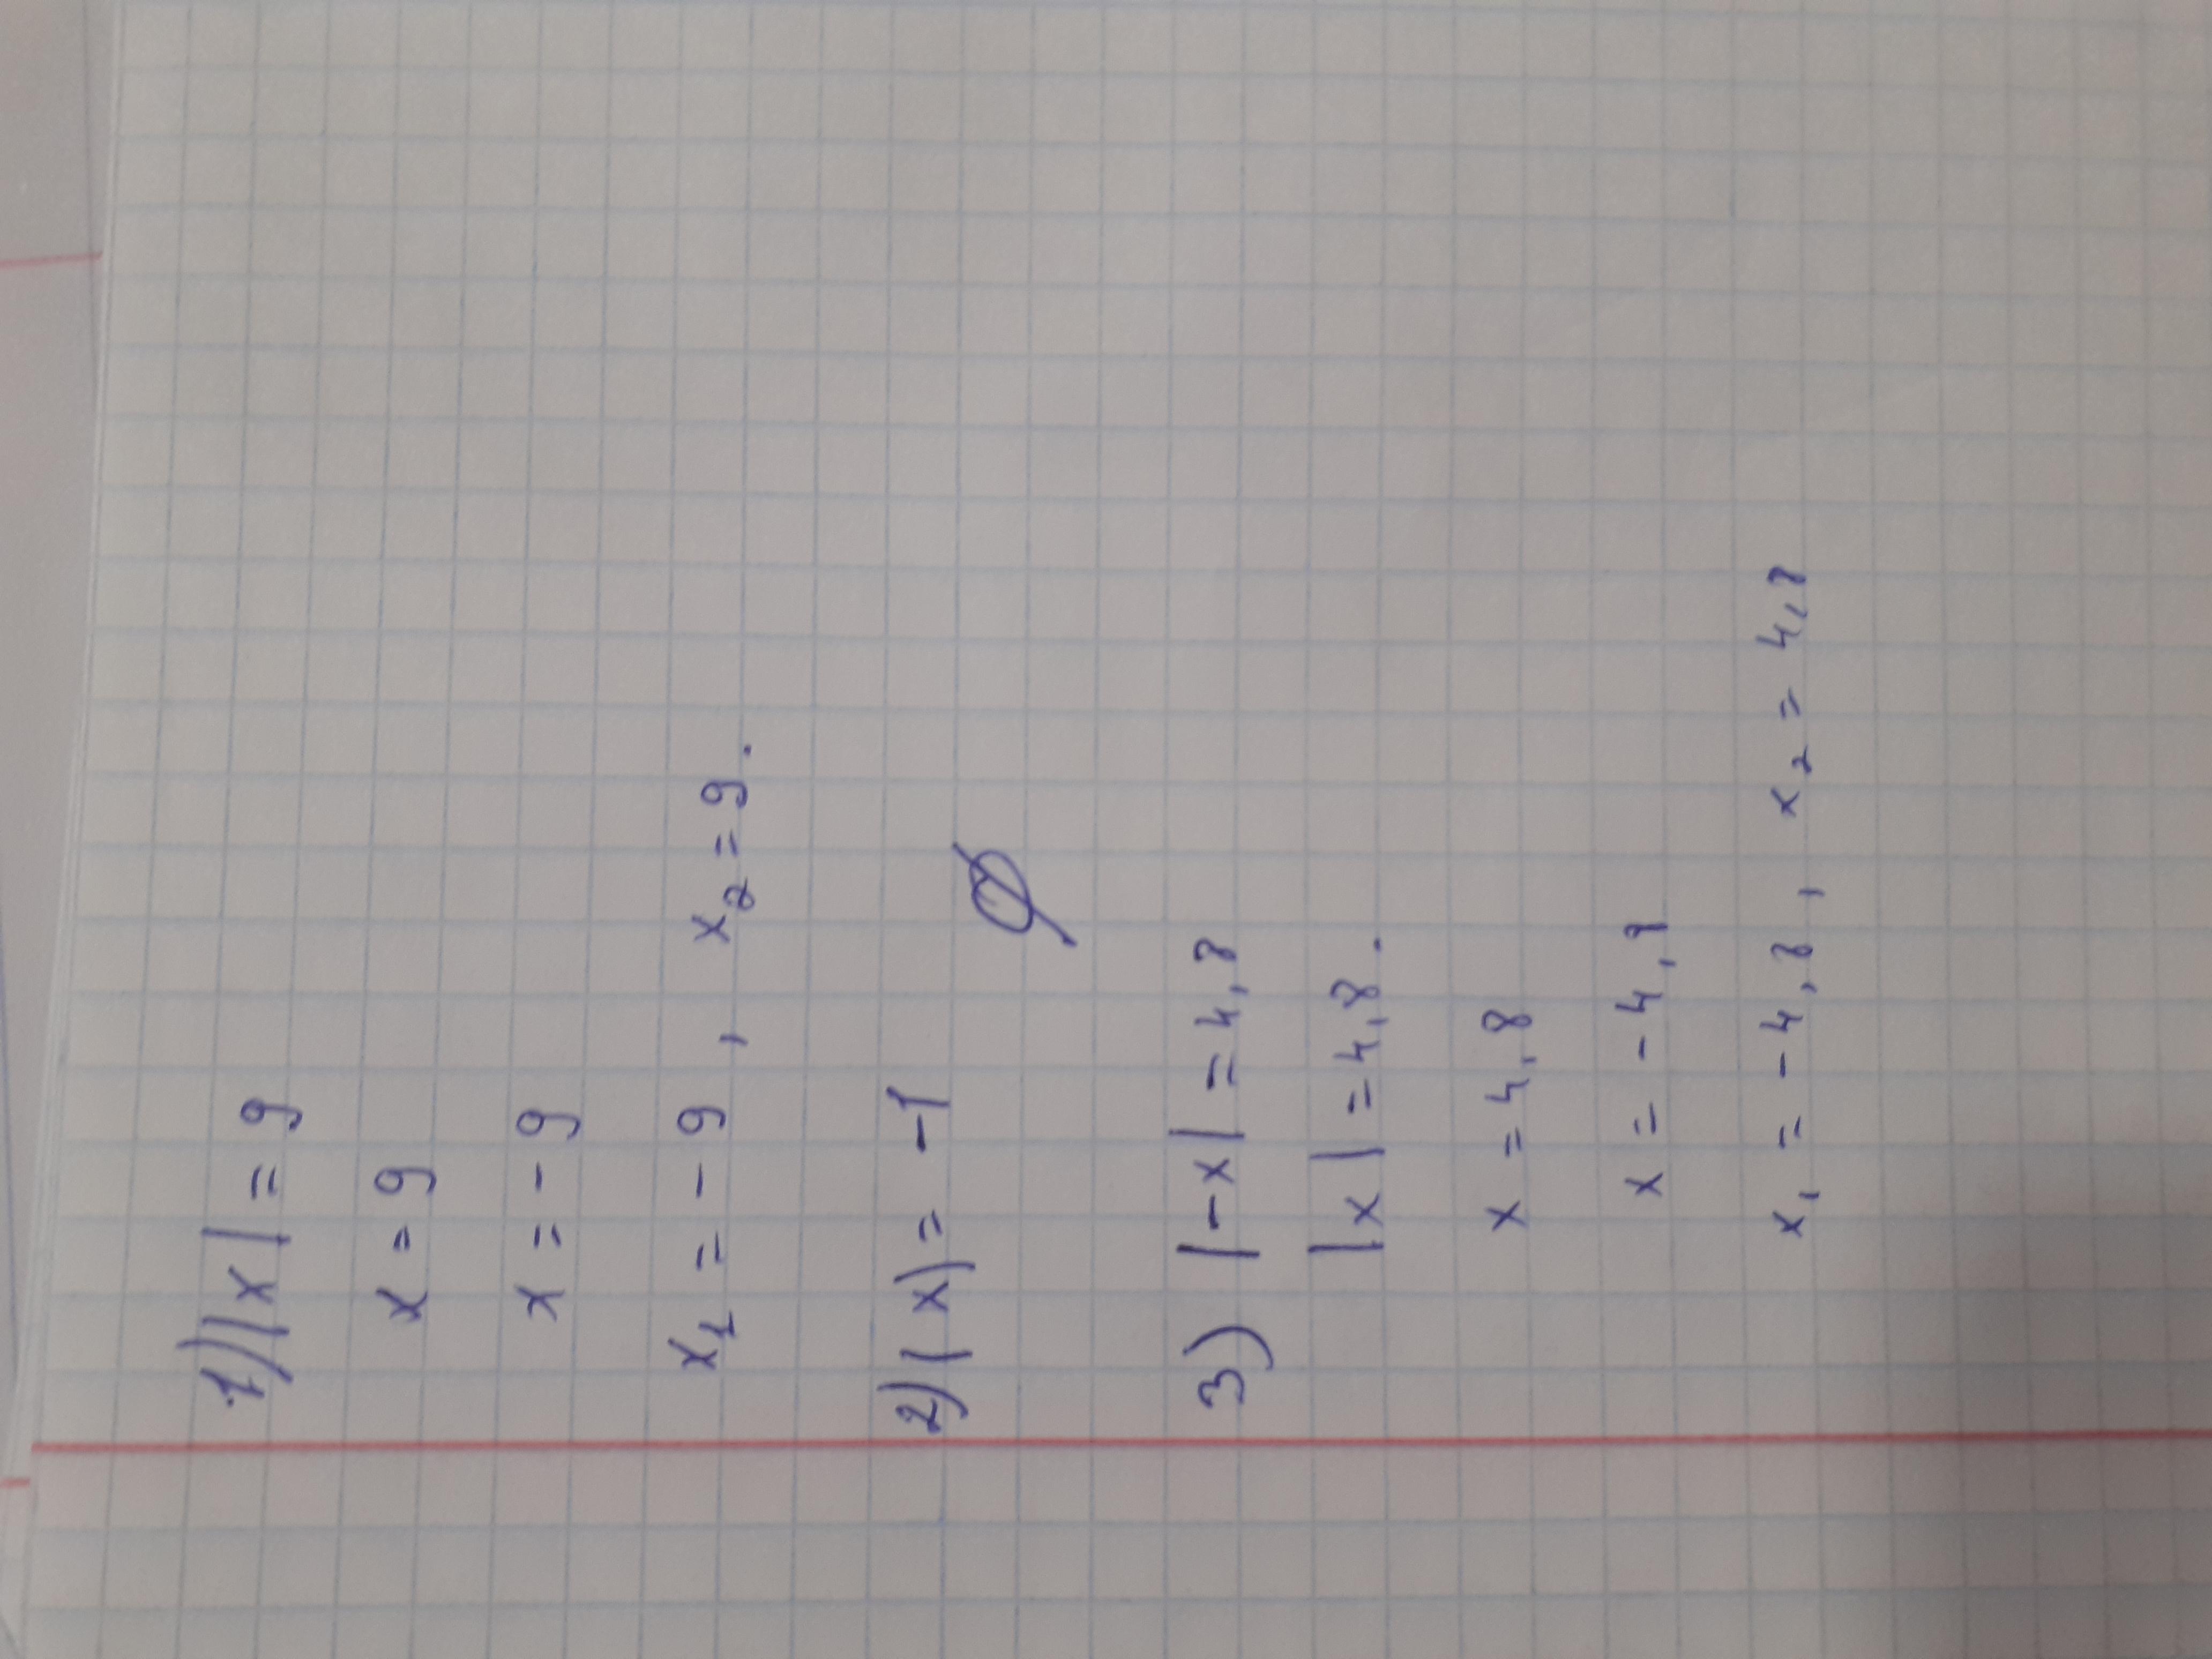 1) |x| = 9
x = 9
x = - 9
x1 = - 9 , x2 = 9 .
2) |x| = -1
∅
3) |-x| = 4,8
|x| = 4,8 .
x = 4,8
x = - 4,8
x1 = - 4,8 , x2 = 4,8